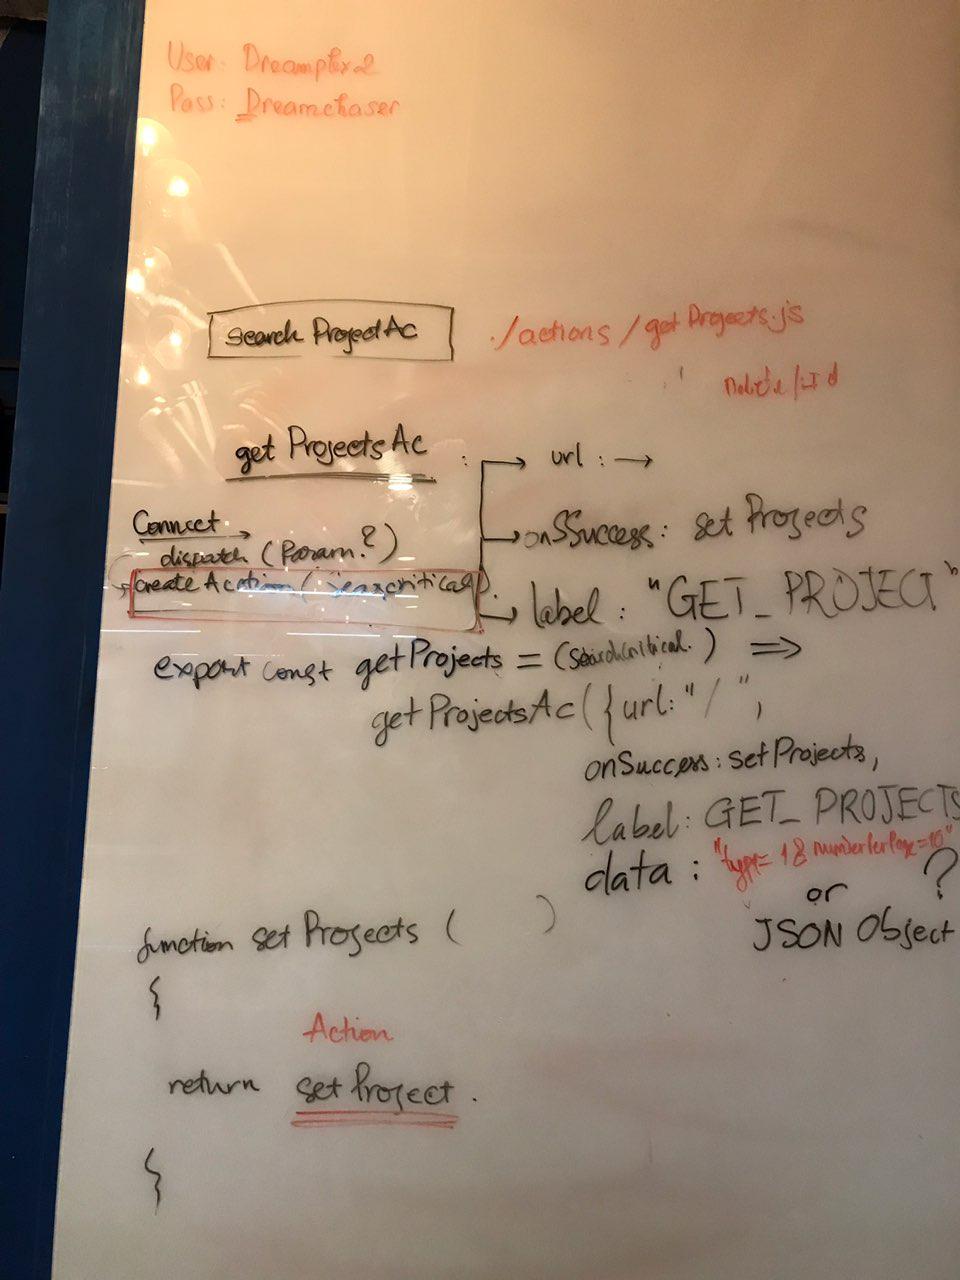 User: Dreampler2
Pass: Dreamchaser
search ProjectAc
./actions/getProjects.js
get ProjectsAc :
url : →
Connect.
dispatch (Param.?)
onSSuccess: set Projects
createAcction (
label : "GET_PROJECT"
export const getProjects = (Searchcritical.) =>
getProjectsAc({url:"/",
onSuccess: setProjects,
label: GET_PROJECTS
data : "type=18 numberPerPage=10"
or ?
JSON Object
function set Projects ( )
{
Action
return set Project .
}